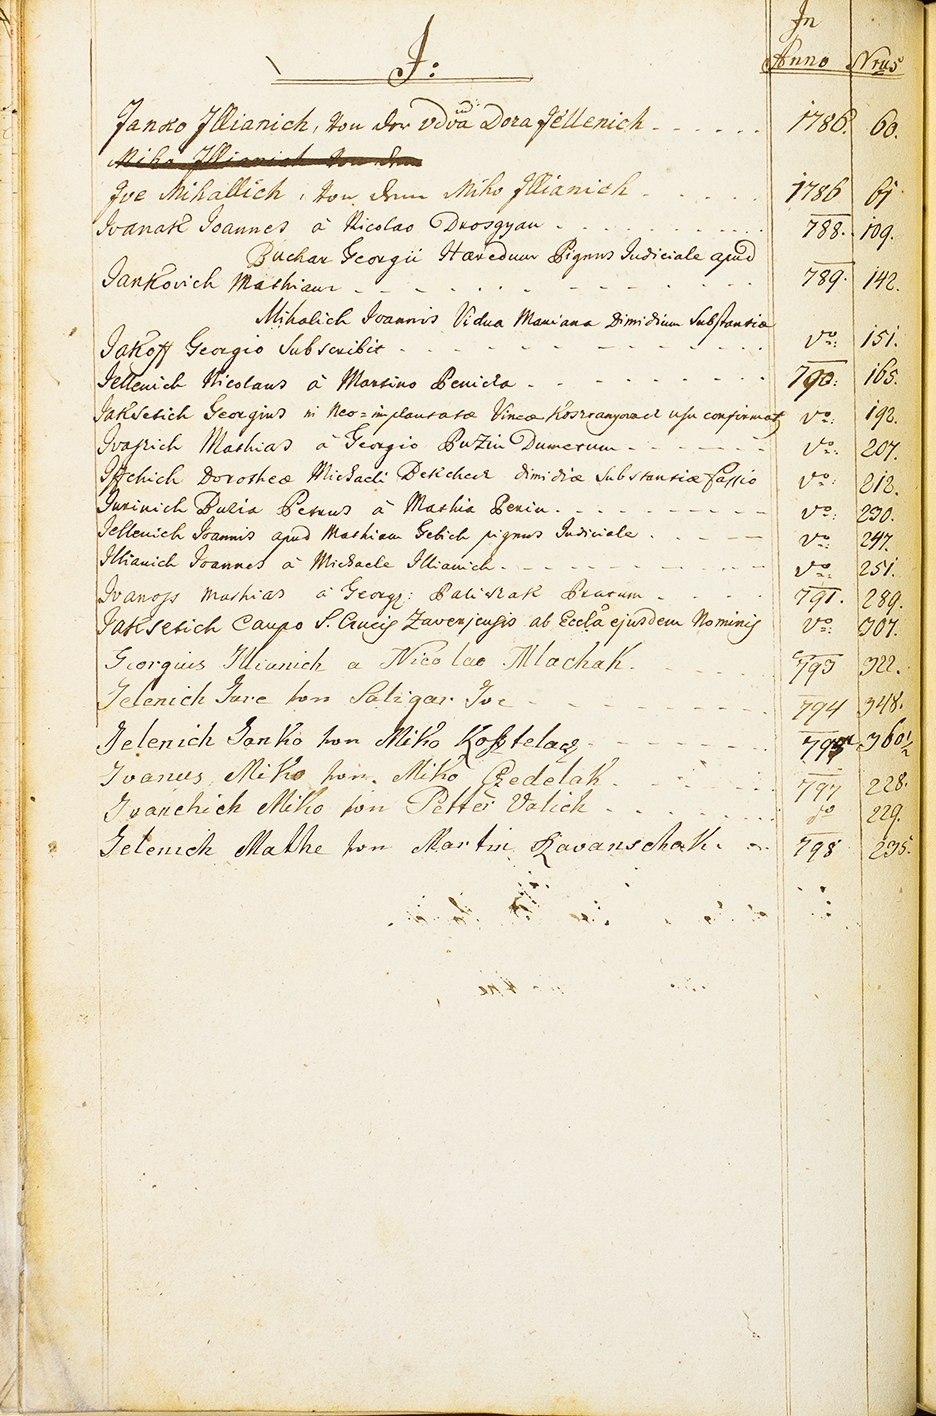 I:
In Anno Nrus
Janko Illianich, von der vdva Dora Jellenich 1786. 60.
Miho Illianich von dem
Ive Mihallich, von dem Miho Illianich 1786 61
Ivanak Joannes à Nicolao Drosgyan 788. 109.
Puchar Georgii Haeredum Pignus Judiciale apud
Jankovich Mathiam 789. 142.
Mihalich Joannis Vidua Mariana Dimidium Substantiae
Jakoff Georgio Subscribit vo: 151.
Jellenich Nicolaus à Martino Penicka 790. 165.
Jaksetich Georgius in Neo=implantatae Vineae usu confirmat vo: 192.
Mathias à Georgio Puzin Dumetum vo: 207.
Dorotheae Michaeli dimidiae Substantiae fassio vo: 212.
Jurinich Petrus à Mathia Penin vo: 230.
Jellenich Joannis apud Mathiam Gebich pignus Judiciale vo: 247.
Illianich Joannes à Michaele Illianich vo: 251.
Mathias à Georg: Palishak Pratum 791. 289.
Jaksetich Caupo S. Crucis ab Eccla ejusdem Nominis vo: 307.
Georgius Illianich a Nicolao Mlachak. 793 322.
Jelenich Jure von Saligar Ive 794 348.
Jelenich Janko von Miko 360 1/2
Ivanus Miko von Miko Czedelak 797 228.
Ivanchich Miko von Petter Valich do 229.
Jelenich Mathe von Martin 798 235.